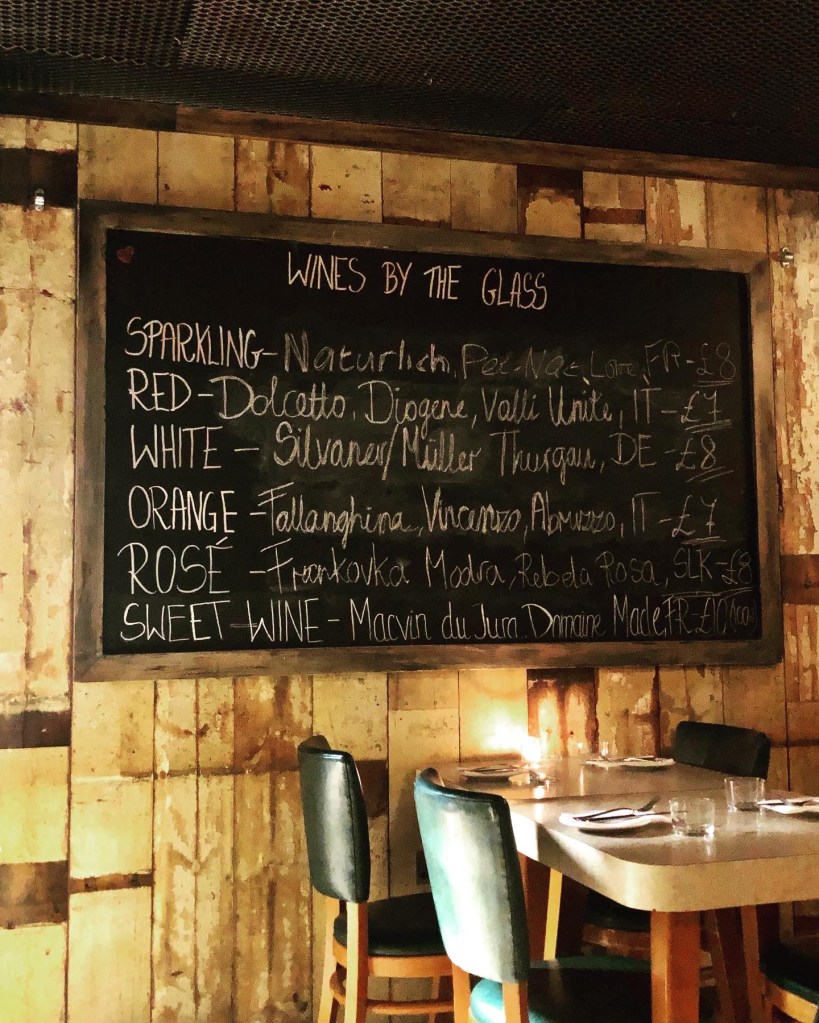 WINES BY THE GLASS
SPARKLING - Naturlich, Pet-Nat, Loire, FR - £8
RED - Dolcetto, Diogene, Valli Unite, IT - £7
WHITE - Silvaner/Müller Thurgau, DE - £8
ORANGE - Fallanghina, Vincenzo, Abruzzo, IT - £7
ROSÉ - Frankovka Modra, Rebela Rosa, SLK - £8
SWEET WINE - Macvin du Jura Domaine Made, FR - £10